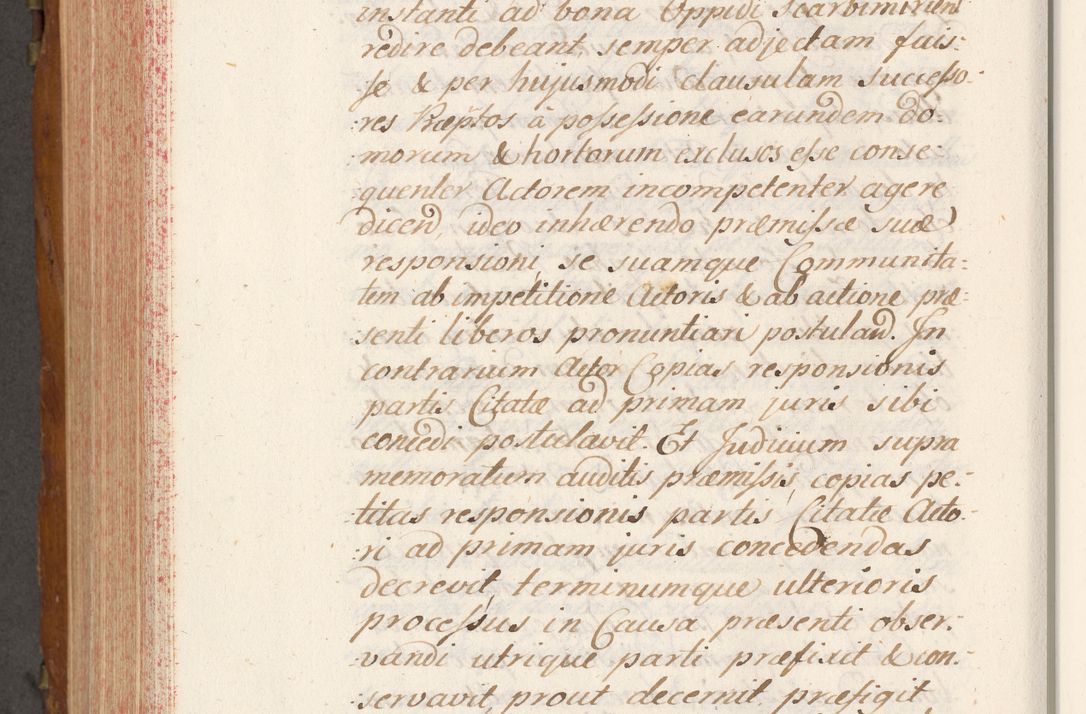 instanti ad bona Oppidi Scarbimirien
redire debeant, semper adjectam fuis-
se & per hujusmodi clausulam successo-
res Præfatos à possessione earundem do-
morum & hortorum exclusos esse conse-
quenter Actorem incompetenter agere
dicend, ideo inhærendo præmissæ suæ
responsioni, se suamque Communita-
tem ab impetitione Actoris & ab actione præ-
senti liberos pronuntiari postuland. In
contrarium Actor Copias responsionis
partis Citatæ ad primam juris sibi
concedi postulavit. Et Judicium supra
memoratum auditis præmissis, copias pe-
titas responsionis partis Citatæ Acto-
ri ad primam juris concedendas
decrevit, terminumque ulterioris
processus in Causa præsenti obser-
vandi utrique parti præfixit & con-
servavit, prout decernit, præfigit